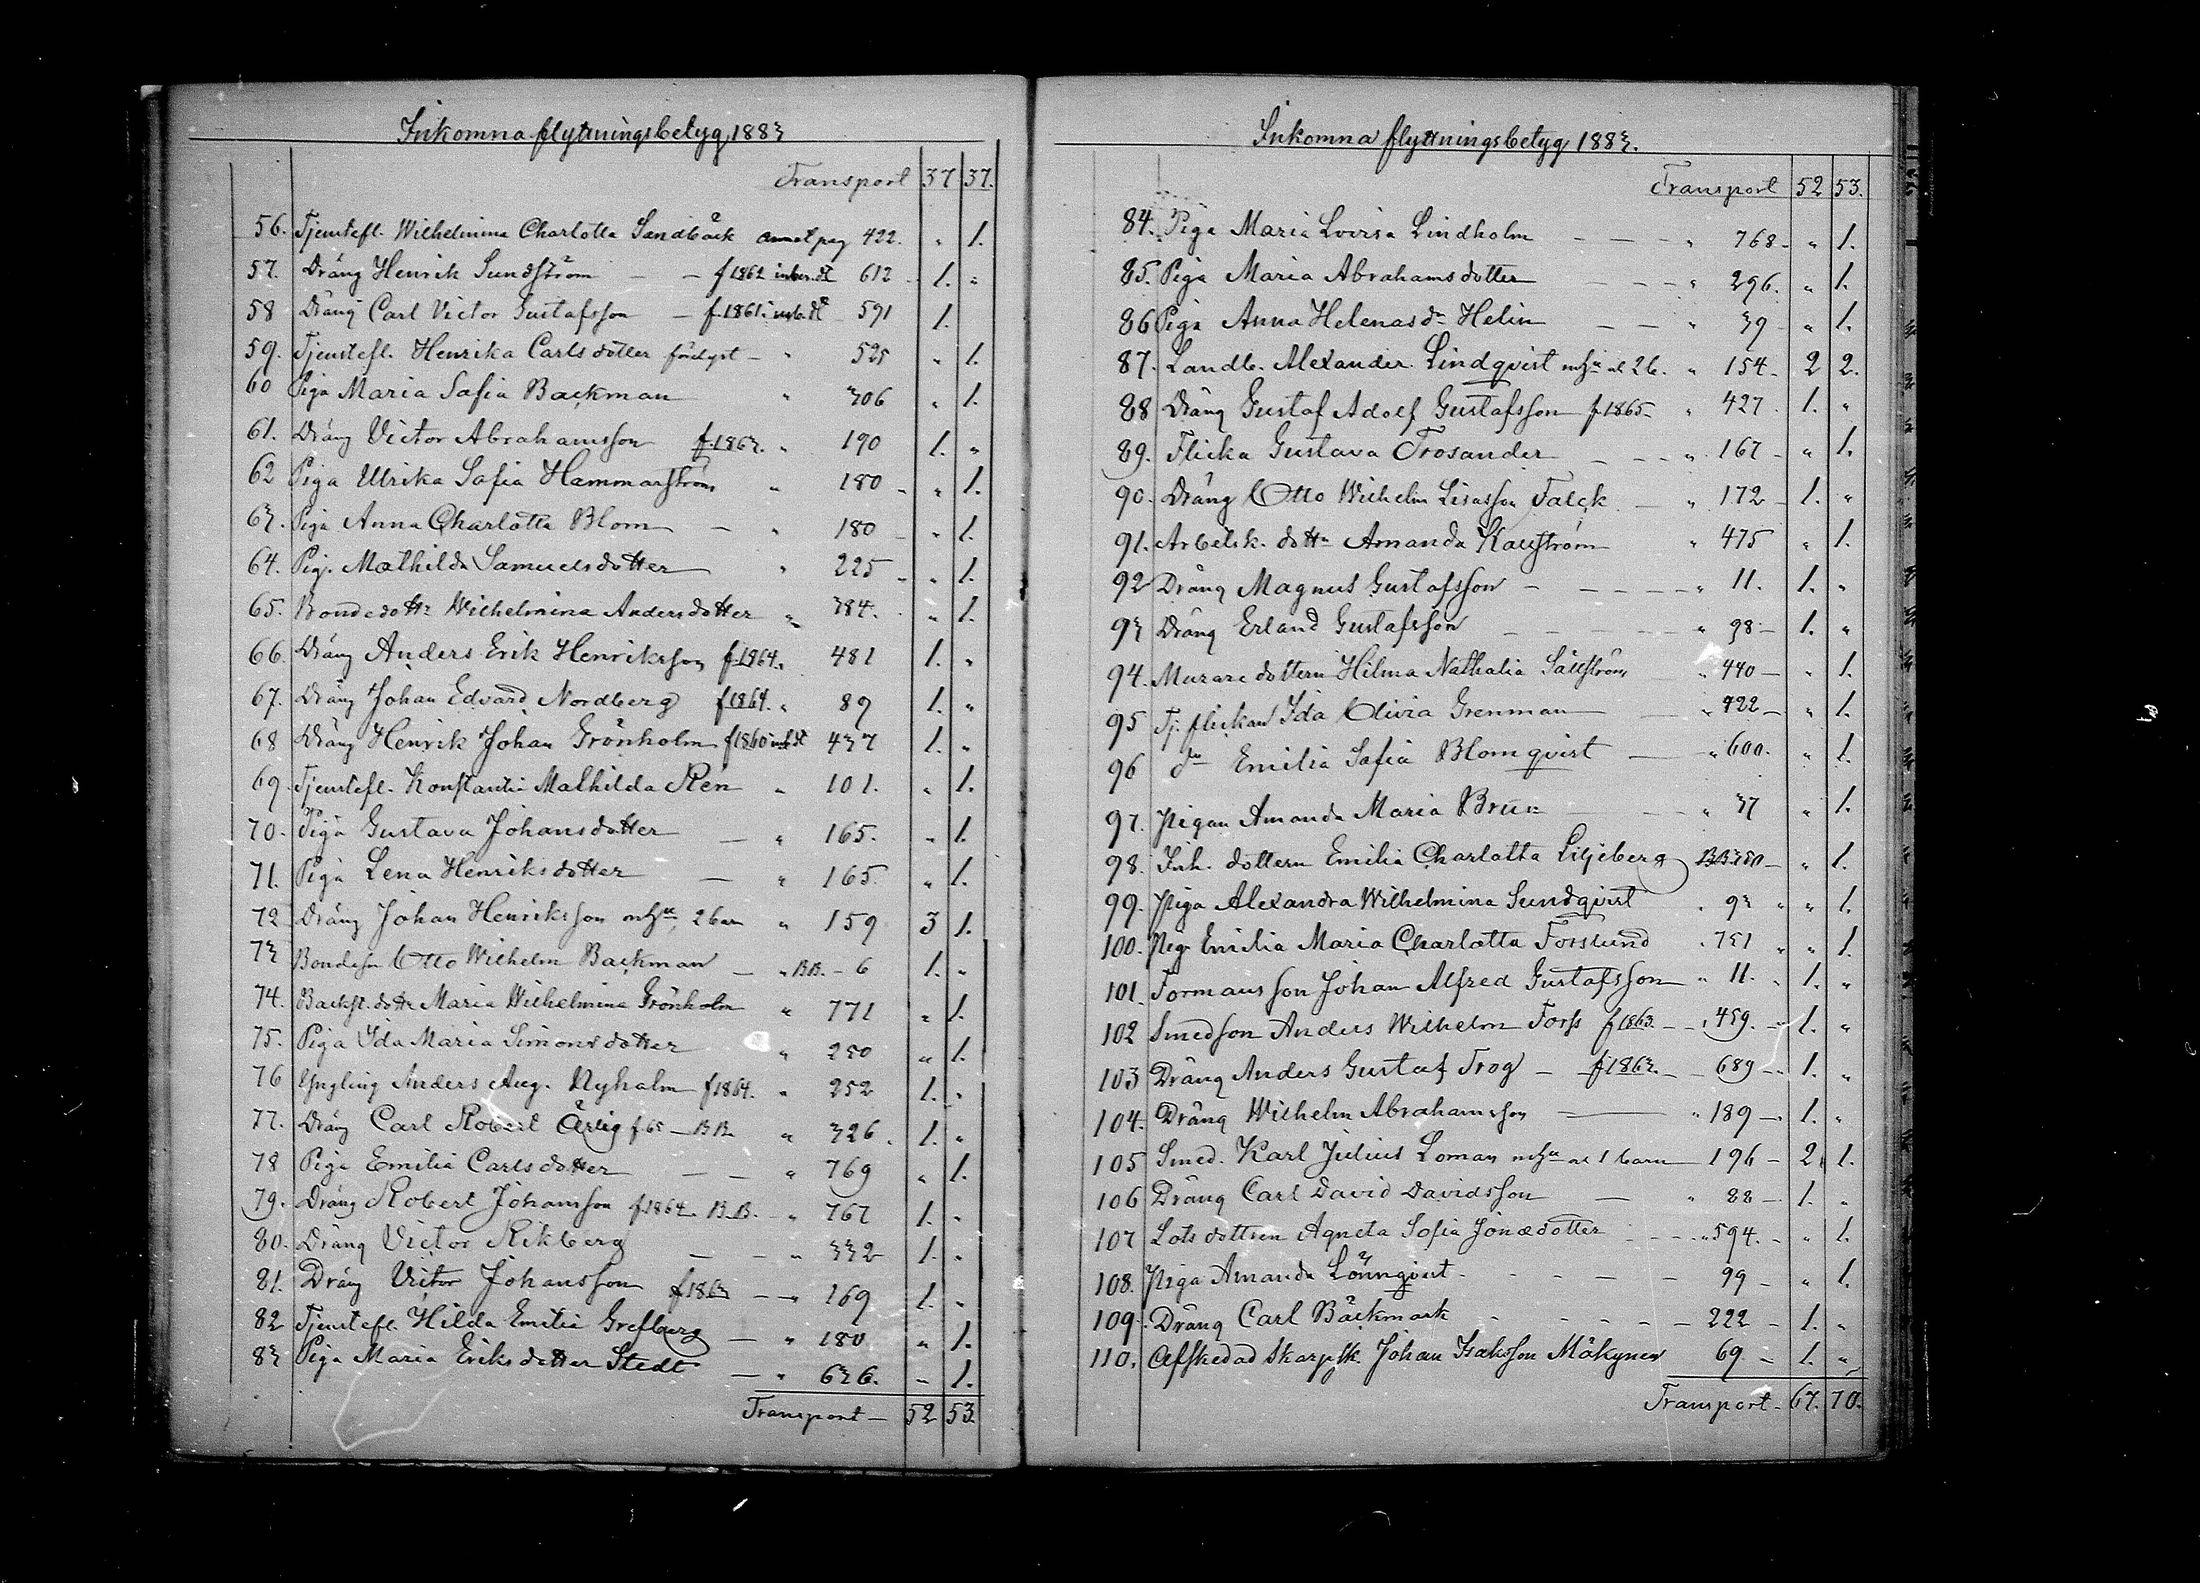 Inkomna flyttningsbetyg 1883
Transport 37 37.
56. Tjenstefl. Wilhelmina Charlotta Sandbäck annot pag 422. " 1.
57. Dräng Henrik Sundström — — f 1862 612 1. "
58 Dräng Carl Victor Gustafsson — f. 1861 591 1.
59. Tjenstefl. Henrika Carlsdotter — " 525 " 1.
60 Piga Maria Sofia Backman " 306 " 1.
61. Dräng Victor Abrahamsson f. 1863. " 190 1. "
62 Piga Ulrika Sofia Hammarström " 180 " 1.
63. Piga Anna Charlotta Blom — " 180 " 1.
64. Pig. Mathilda Samuelsdotter " 225 " 1.
65. Bondedottr Wilhelmina Andersdotter " 384. " 1.
66. Dräng Anders Erik Henriksson f 1864. " 481 1. "
67. Dräng Johan Edvard Nordberg f 1864. " 89 1. "
68 Dräng Henrik Johan Grönholm f 1860 437 1. "
69. Tjenstefl. Konstantia Mathilda Ren " 101. " 1.
70. Piga Gustava Johansdotter — " 165. " 1.
71. Piga Lena Henriksdotter — " 165. " 1.
72 Dräng Johan Henriksson " 159 3 1.
73 Bondeson Otto Wilhelm Backman — " BB. – 6 1. "
74. Backst. dottr Maria Wilhelmina Grönholm " 771 " 1.
75. Piga Ida Maria Simonsdotter " 250 " 1.
76 Yngling Anders Aug. Nyholm f 1864. " 252 1. "
77. Dräng Carl Robert Ärlig f 65 — BB " 326. 1. "
78 Piga Emilia Carlsdotter — — " 769 " 1.
79. Dräng Robert Johansson f 1864. B.B. — " 767 1. "
80. Dräng Victor Rikberg — — " 332 1. "
81. Dräng Victor Johansson f 1863 — " 169 1. "
82 Tjenstefl. Hilda Emilia Grefberg — " 180 " 1.
83 Piga Maria Eriksdotter Stedt — " 636. " 1.
Transport — 52 53.
Inkomna flyttningsbetyg 1883.
Transport 52 53.
84. Piga Maria Lovisa Lindholm — — — " 768 – " 1.
85. Piga Maria Abrahamsdotter — — — " 296. " 1.
86 Piga Anna Helenasdr Helin — — " 39 – " 1.
87. Landb. Alexander Lindqvist " 154 – 2 2.
88 Dräng Gustaf Adolf Gustafsson f. 1865 – " 427. 1. "
89. Flicka Gustava Trosander — — " 167 – " 1.
90. Dräng Otto Wilhelm Lisasson Falck — " 172 – 1. "
91. Arbetsk. dottr Amanda " 475 " 1.
92 Dräng Magnus Gustafsson — — — — " 11. 1. "
93 Dräng Erland Gustafsson — — — — " 98 – 1. "
94. Muraredottern Hilma Nathalia Sällström " 440 – " 1.
95 Tj. flickan Ida Olivia Grenman — " 422 – " 1.
96 do Emilia Sofia Blomqvist — " 600. " 1.
97. Pigan Amanda Maria Brun — — " 37 " 1.
98. Inh. dottern Emilia Charlotta Liljeberg – " 1.
99. Piga Alexandra Wilhelmina Sundqvist " 93 " " 1.
100. Pig. Emilia Maria Charlotta Forslund " 751 " " 1.
101. Formansson Johan Alfred Gustafsson " 11. " 1. "
102 Smedson Anders Wilhelm Forss f 1863. — " 459. – 1. "
103 Dräng Anders Gustaf Trog — f 1863. — 689 – 1. "
104. Dräng Wilhelm Abrahamsson — " 189 – 1. "
105 Smed. Karl Julius Loman 1 barn — 196 – 2. 1.
106 Dräng Carl David Davidsson — " 88 – 1. "
107 Lotsdottren Agneta Sofia Jonædotter — — " 594. – " 1.
108. Piga Amanda Lönnqvist. – – — — 99 – " 1.
109. Dräng Carl Bäckmark – – – — 222 – 1. "
110. Afskedad Skarpsk. Johan Isaksson Mäkynen 69. – 1. "
Transport – 67. 70.